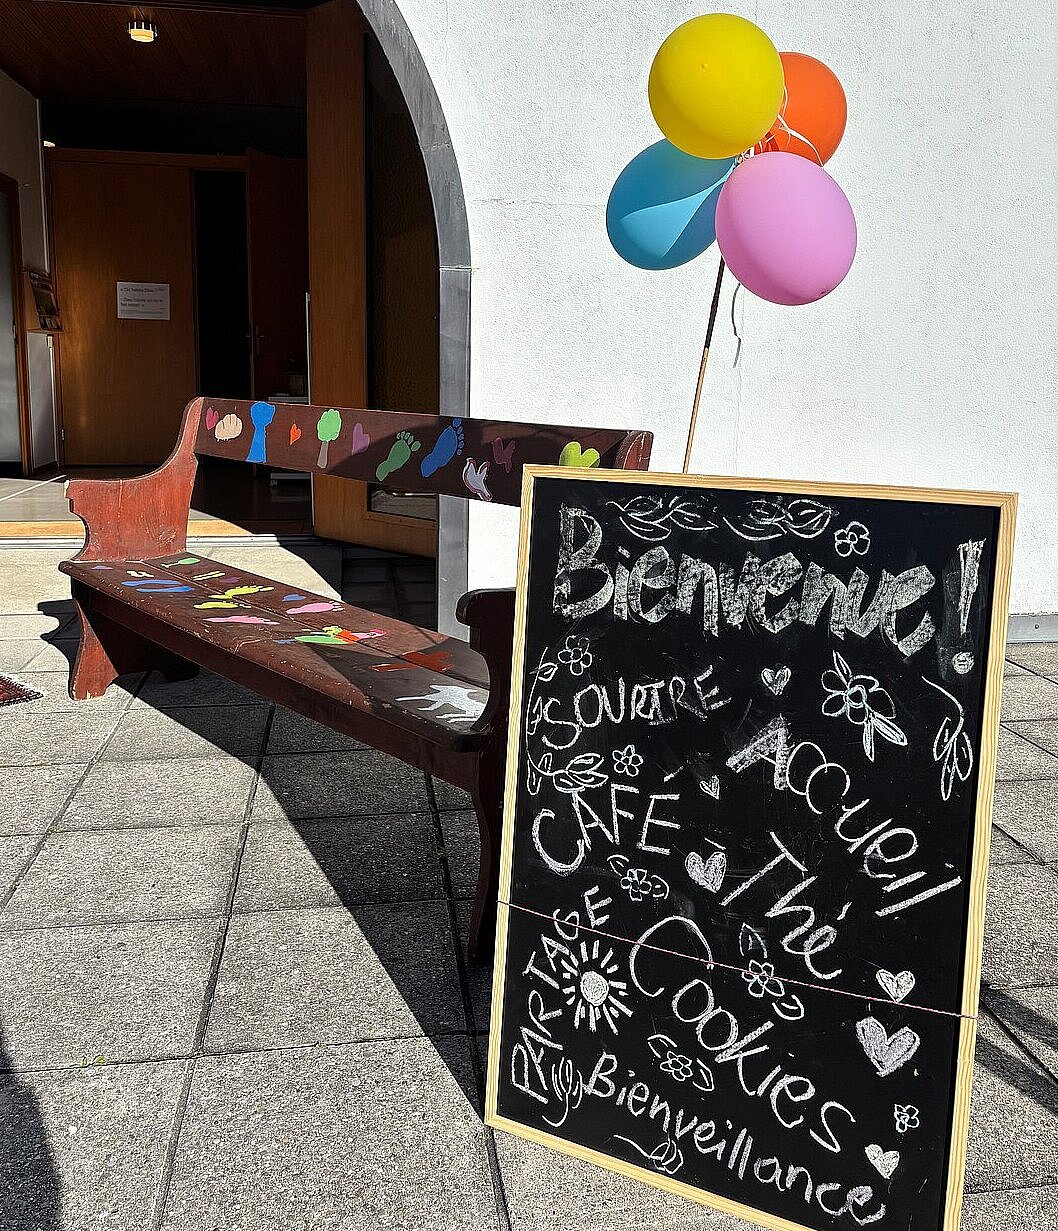 Bienvenue !
SOURIRE
ACCUEil
CAFÉ
Thé
PARTAGE
Cookies
Bienveillance